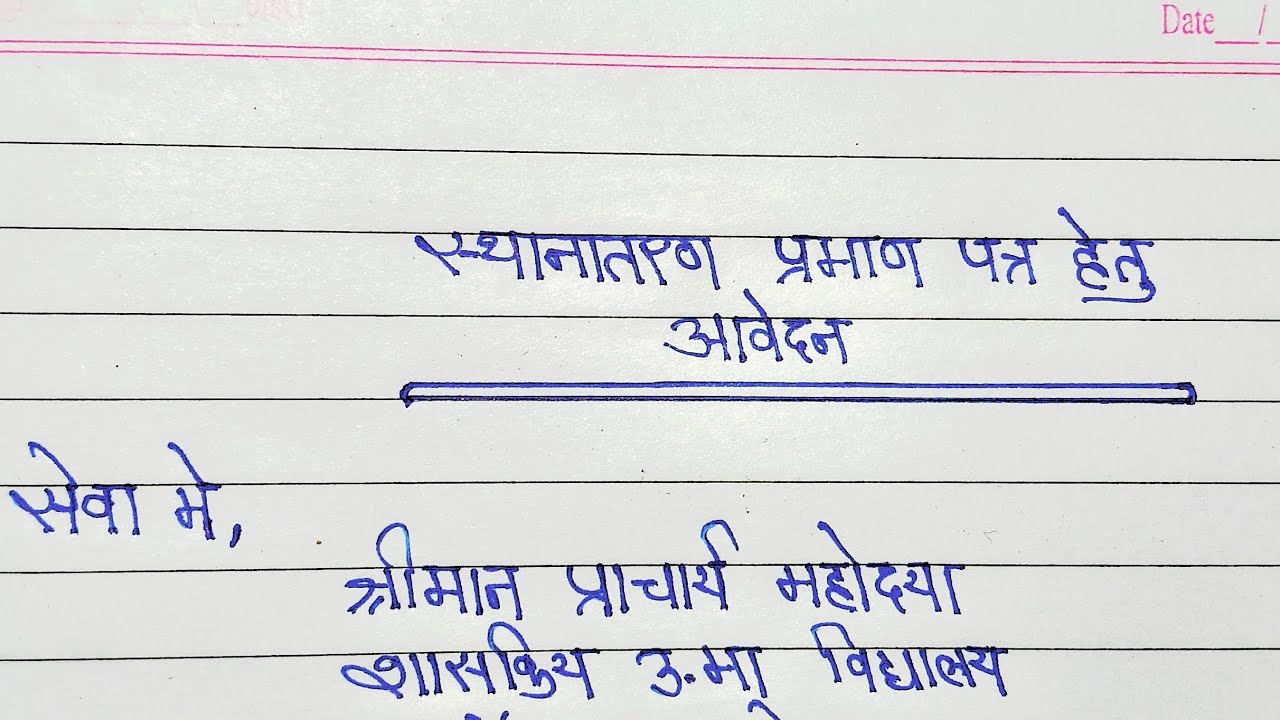 Date__/_
स्थानातरण प्रमाण पत्र हेतु
आवेदन
सेवा मे,
श्रीमान प्राचार्य महोदया
शासकिय उ.मा. विद्यालय